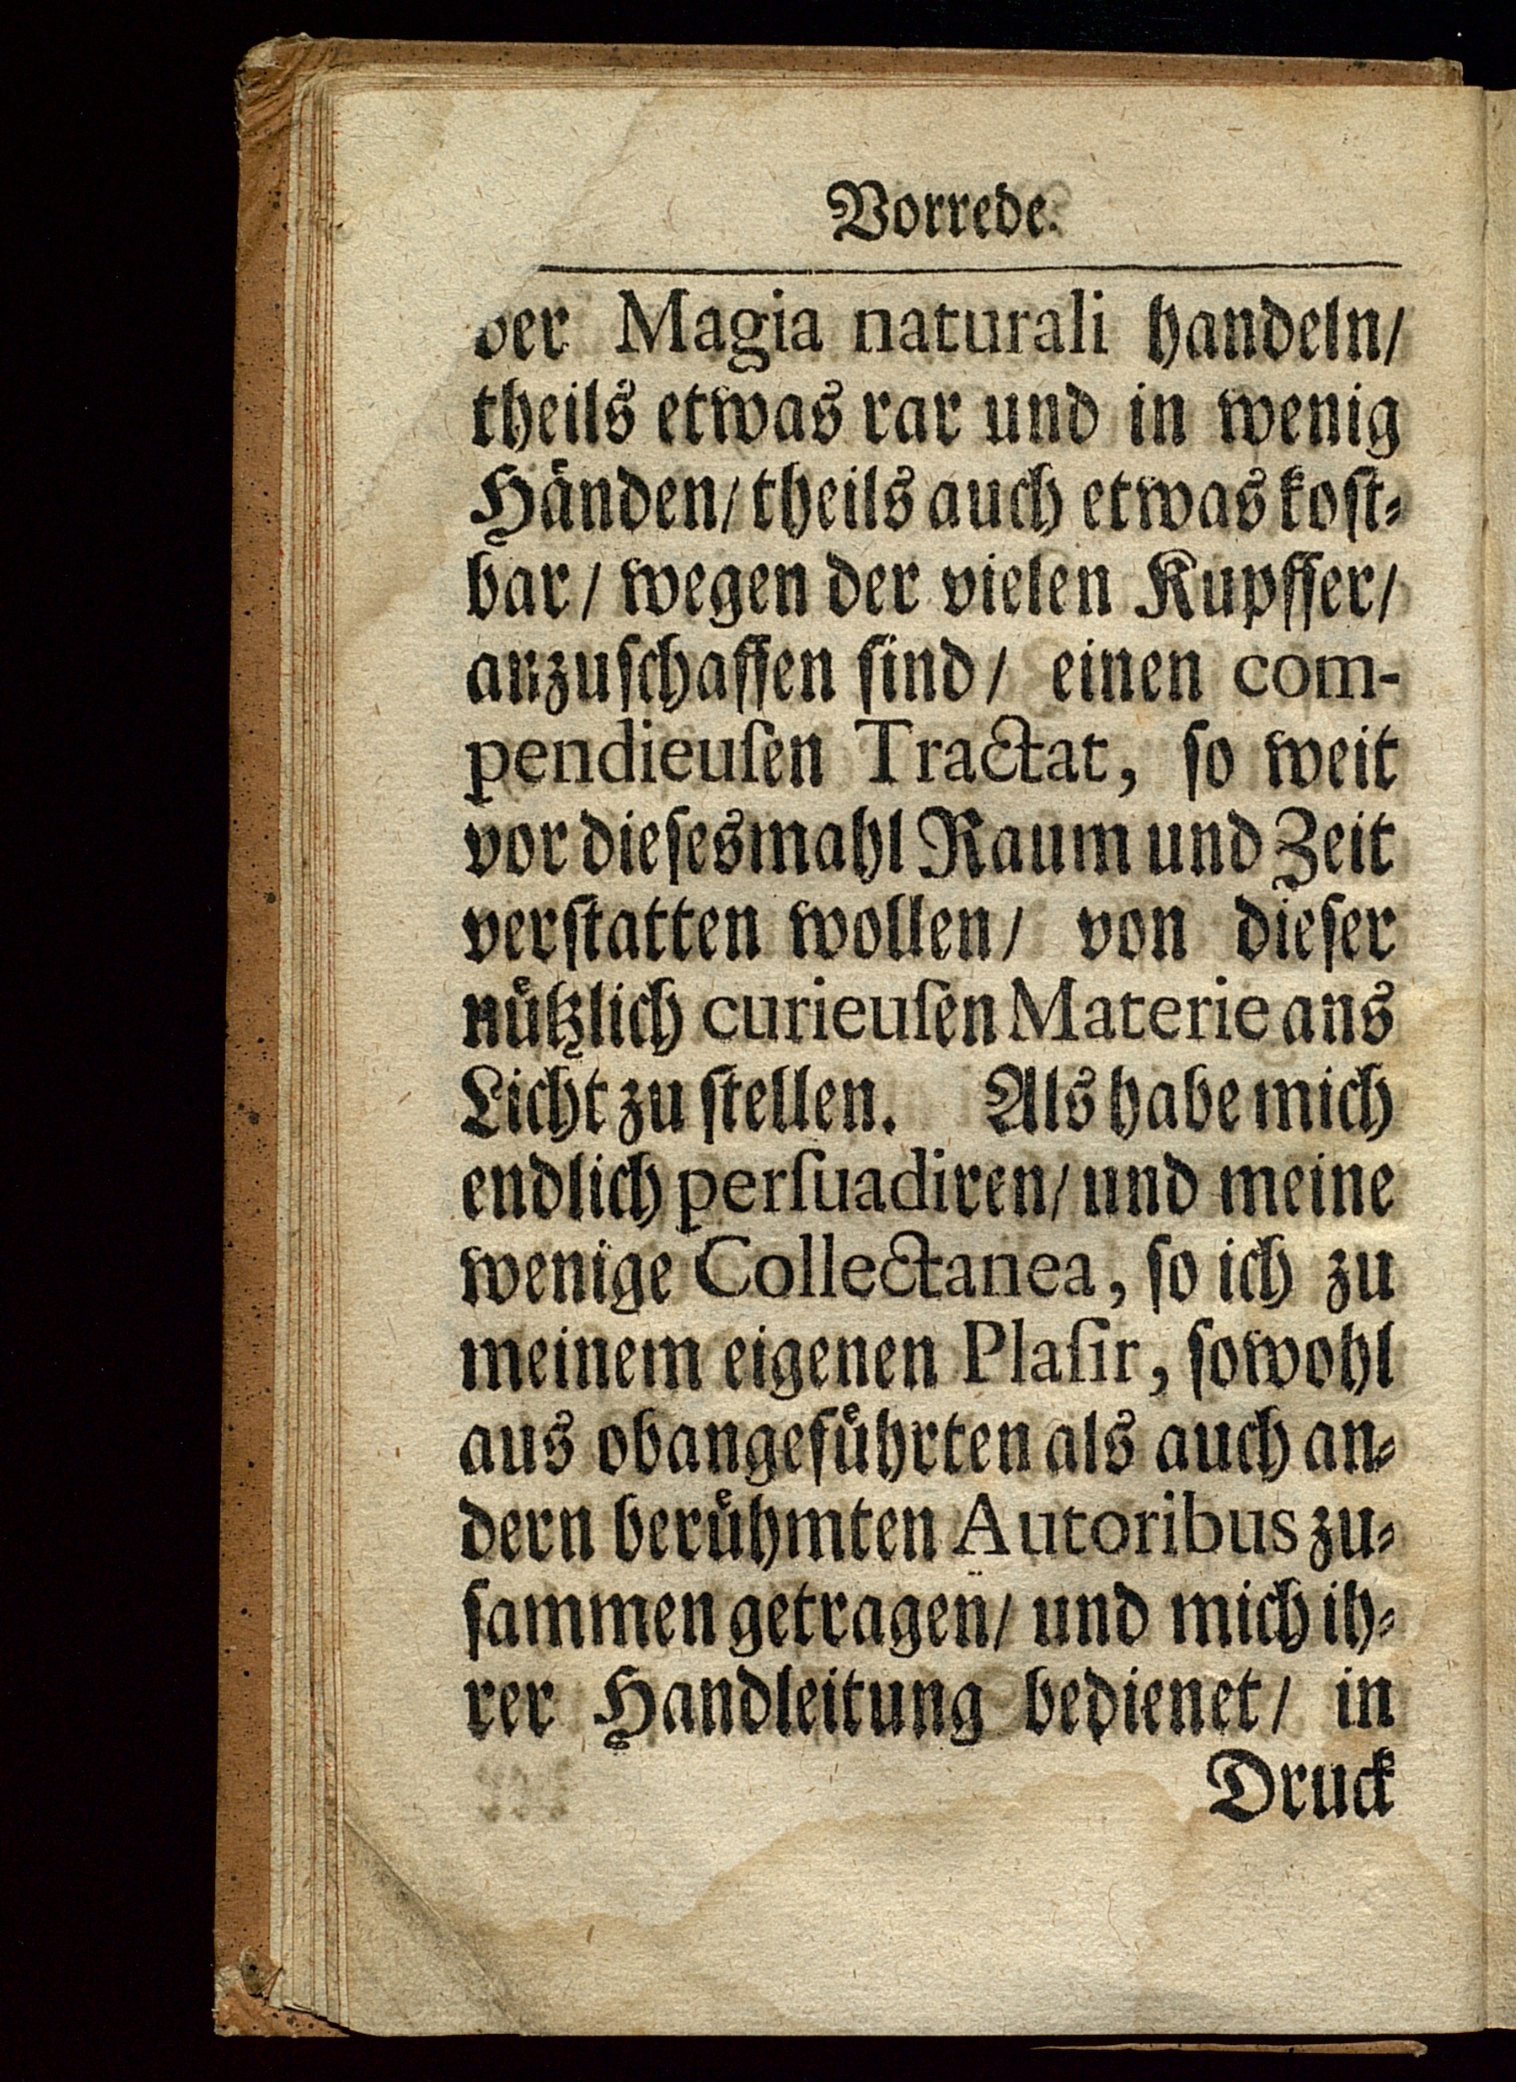 Vorrede.
der Magia naturali handeln/
theils etwas rar und in wenig
Händen/ theils auch etwas kost⸗
bar/ wegen der vielen Kupffer/
anzuschaffen sind/ einen com-
pendieuſen Tractat, ſo weit
vor dieſesmahl Raum und Zeit
verſtatten wollen/ von dieſer
nuͤtzlich curieuſen Materie ans
Licht zu ſtellen. Als habe mich
endlich perſuadiren/ und meine
wenige Collectanea, ſo ich zu
meinem eigenen Plaſir, ſowohl
aus obangefuͤhrten als auch an⸗
dern beruͤhmten Autoribus zu⸗
ſammen getragen/ und mich ih⸗
rer Handleitung bedienet/ in
Druck